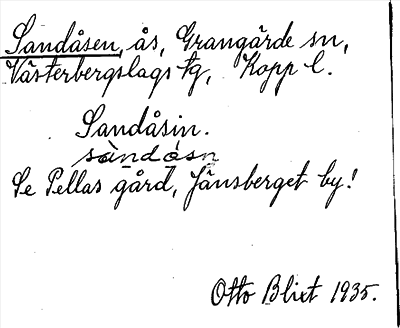 Sandåsen, ås, Grangärde sn,
Västerbergslags tg, Kopp l.
Sandåsin.
sàndåsn
Se Pellas gård, Jänsberget by!
Otto Blixt 1935.